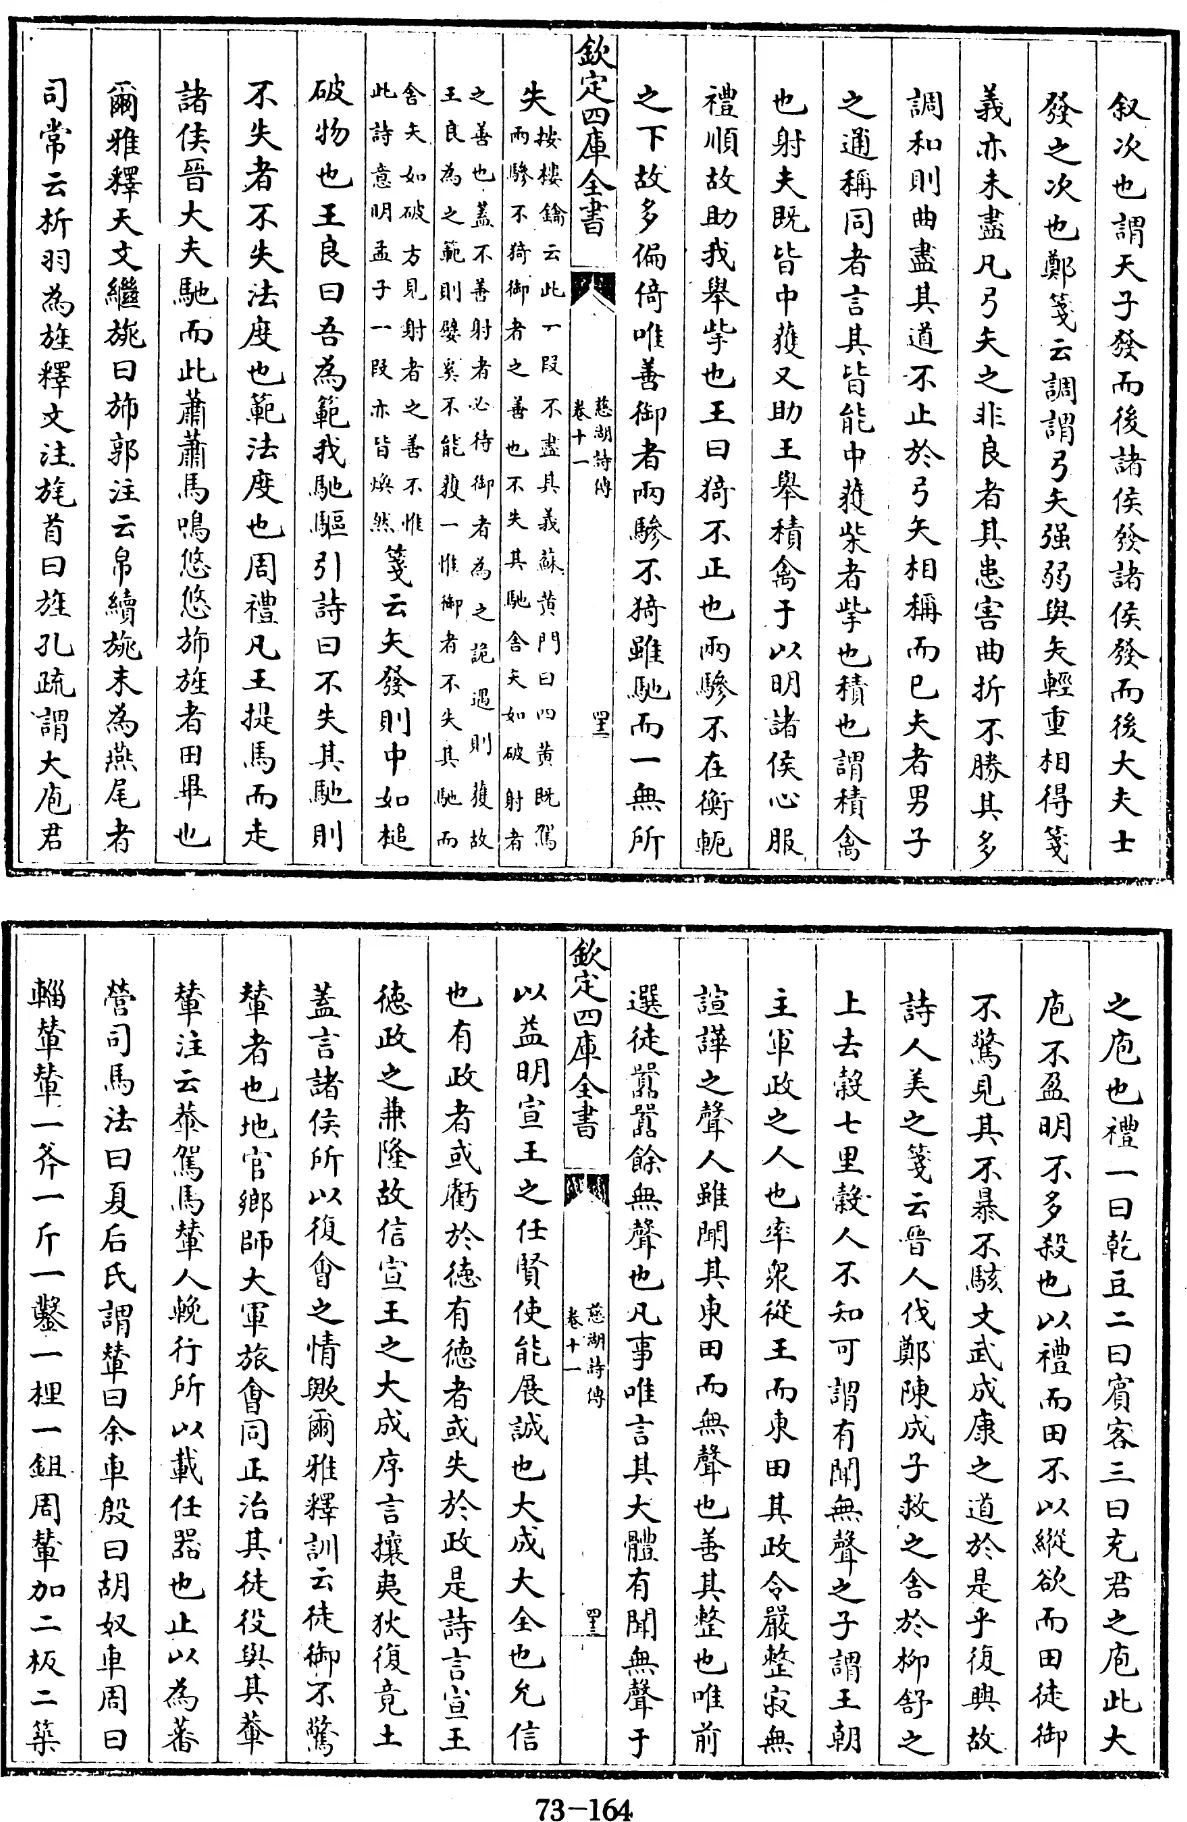 叙次也謂天子發而後諸侯發諸侯發而後大夫士
發之次也鄭箋云調謂弓矢强弱與矢輕重相得箋
義亦未盡凡弓矢之非良者其患害曲折不勝其多
調和則曲盡其道不止於弓矢相稱而已夫者男子
之通稱同者言其皆能中蓷柴者掌也積也謂積禽
也射夫既皆中蓷又助王舉積禽于以明諸侯心服
禮順故助我舉掌也王曰猗不正也兩驂不在衡軛
之下故多偏倚唯善御者兩驂不猗雖馳而一無所
欽定四庫全書
慈湖詩傳
卷十一
失
按樓鑰云此下一段不盡其義蘇黄門曰四黄既駕
兩驂不猗御者之善也不失其馳舍矢如破射者
之善也蓋不善射者必待御者為之詭遇則獲故
王良為之範則嬖奚不能獲一惟御者不失其馳而
舍矢如破方見射者之善不惟
此詩意明孟子一段亦皆煥然
箋云矢發則中如槌
破物也王良曰吾為範我馳驅引詩曰不失其馳則
不失者不失法度也範法度也周禮凡王提馬而走
諸侯晉大夫馳而此蕭蕭馬鳴悠悠斾旌者田畢也
爾雅釋天文繼旐曰斾郭注云帛續旐末為燕尾者
司常云析羽為旌釋文注旄首曰旌孔疏謂大庖君
之庖也禮一曰乾豆二曰賓客三曰充君之庖此大
庖不盈明不多殺也以禮而田不以縱欲而田徒御
不驚見其不暴不駭文武成康之道於是乎復興故
詩人美之箋云晉人伐鄭陳成子救之舍於柳舒之
上去穀七里穀人不知可謂有聞無聲之子謂王朝
主軍政之人也率衆從王而東田其政令嚴整寂無
諠譁之聲人雖聞其東田而無聲也善其整也唯前
選徒囂囂餘無聲也凡事唯言其大體有聞無聲于
欽定四庫全書
慈湖詩傳
卷十一
以益明宣王之任賢使能展誠也大成大全也允信
也有政者或虧於德有德者或失於政是詩言宣王
德政之兼隆故信宣王之大成序言攘夷狄復竟土
蓋言諸侯所以復會之情歟爾雅釋訓云徒御不驚
輦者也地官鄉師大軍旅會同正治其徒役與其輂
輦注云輂駕馬輦人輓行所以載任器也止以為蕃
營司馬法曰夏后氏謂輦曰余車殷曰胡奴車周曰
輜輦輦一斧一斤一鑿一梩一鉏周輦加二板二築
73-164